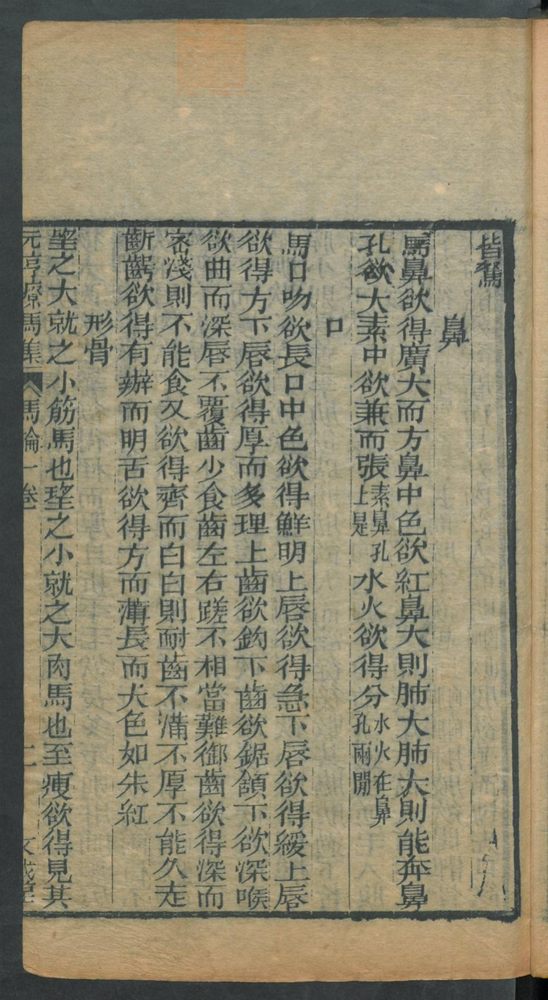 皆駑
鼻
馬鼻欲得廣大而方鼻中色欲紅鼻大則肺大肺大則能奔鼻
孔欲大素中欲兼而張素鼻孔上是水火欲得分水火在鼻孔兩間
口
馬口吻欲長口中色欲得鮮明上唇欲得急下唇欲得緩上唇
欲得方下唇欲得厚而多理上齒欲鈎下齒欲鋸頷下欲深喉
欲曲而深唇不覆齒少食齒左右蹉不相當難御齒欲得深而
密淺則不能食又欲得齊而白白則耐齒不滿不厚不能久走
齗齶欲得有辦而明舌欲得方而薄長而大色如朱紅
形骨
望之大就之小筋馬也望之小就之大肉馬也至瘦欲得見其
元亨療馬集 馬論一卷 二 文盛堂